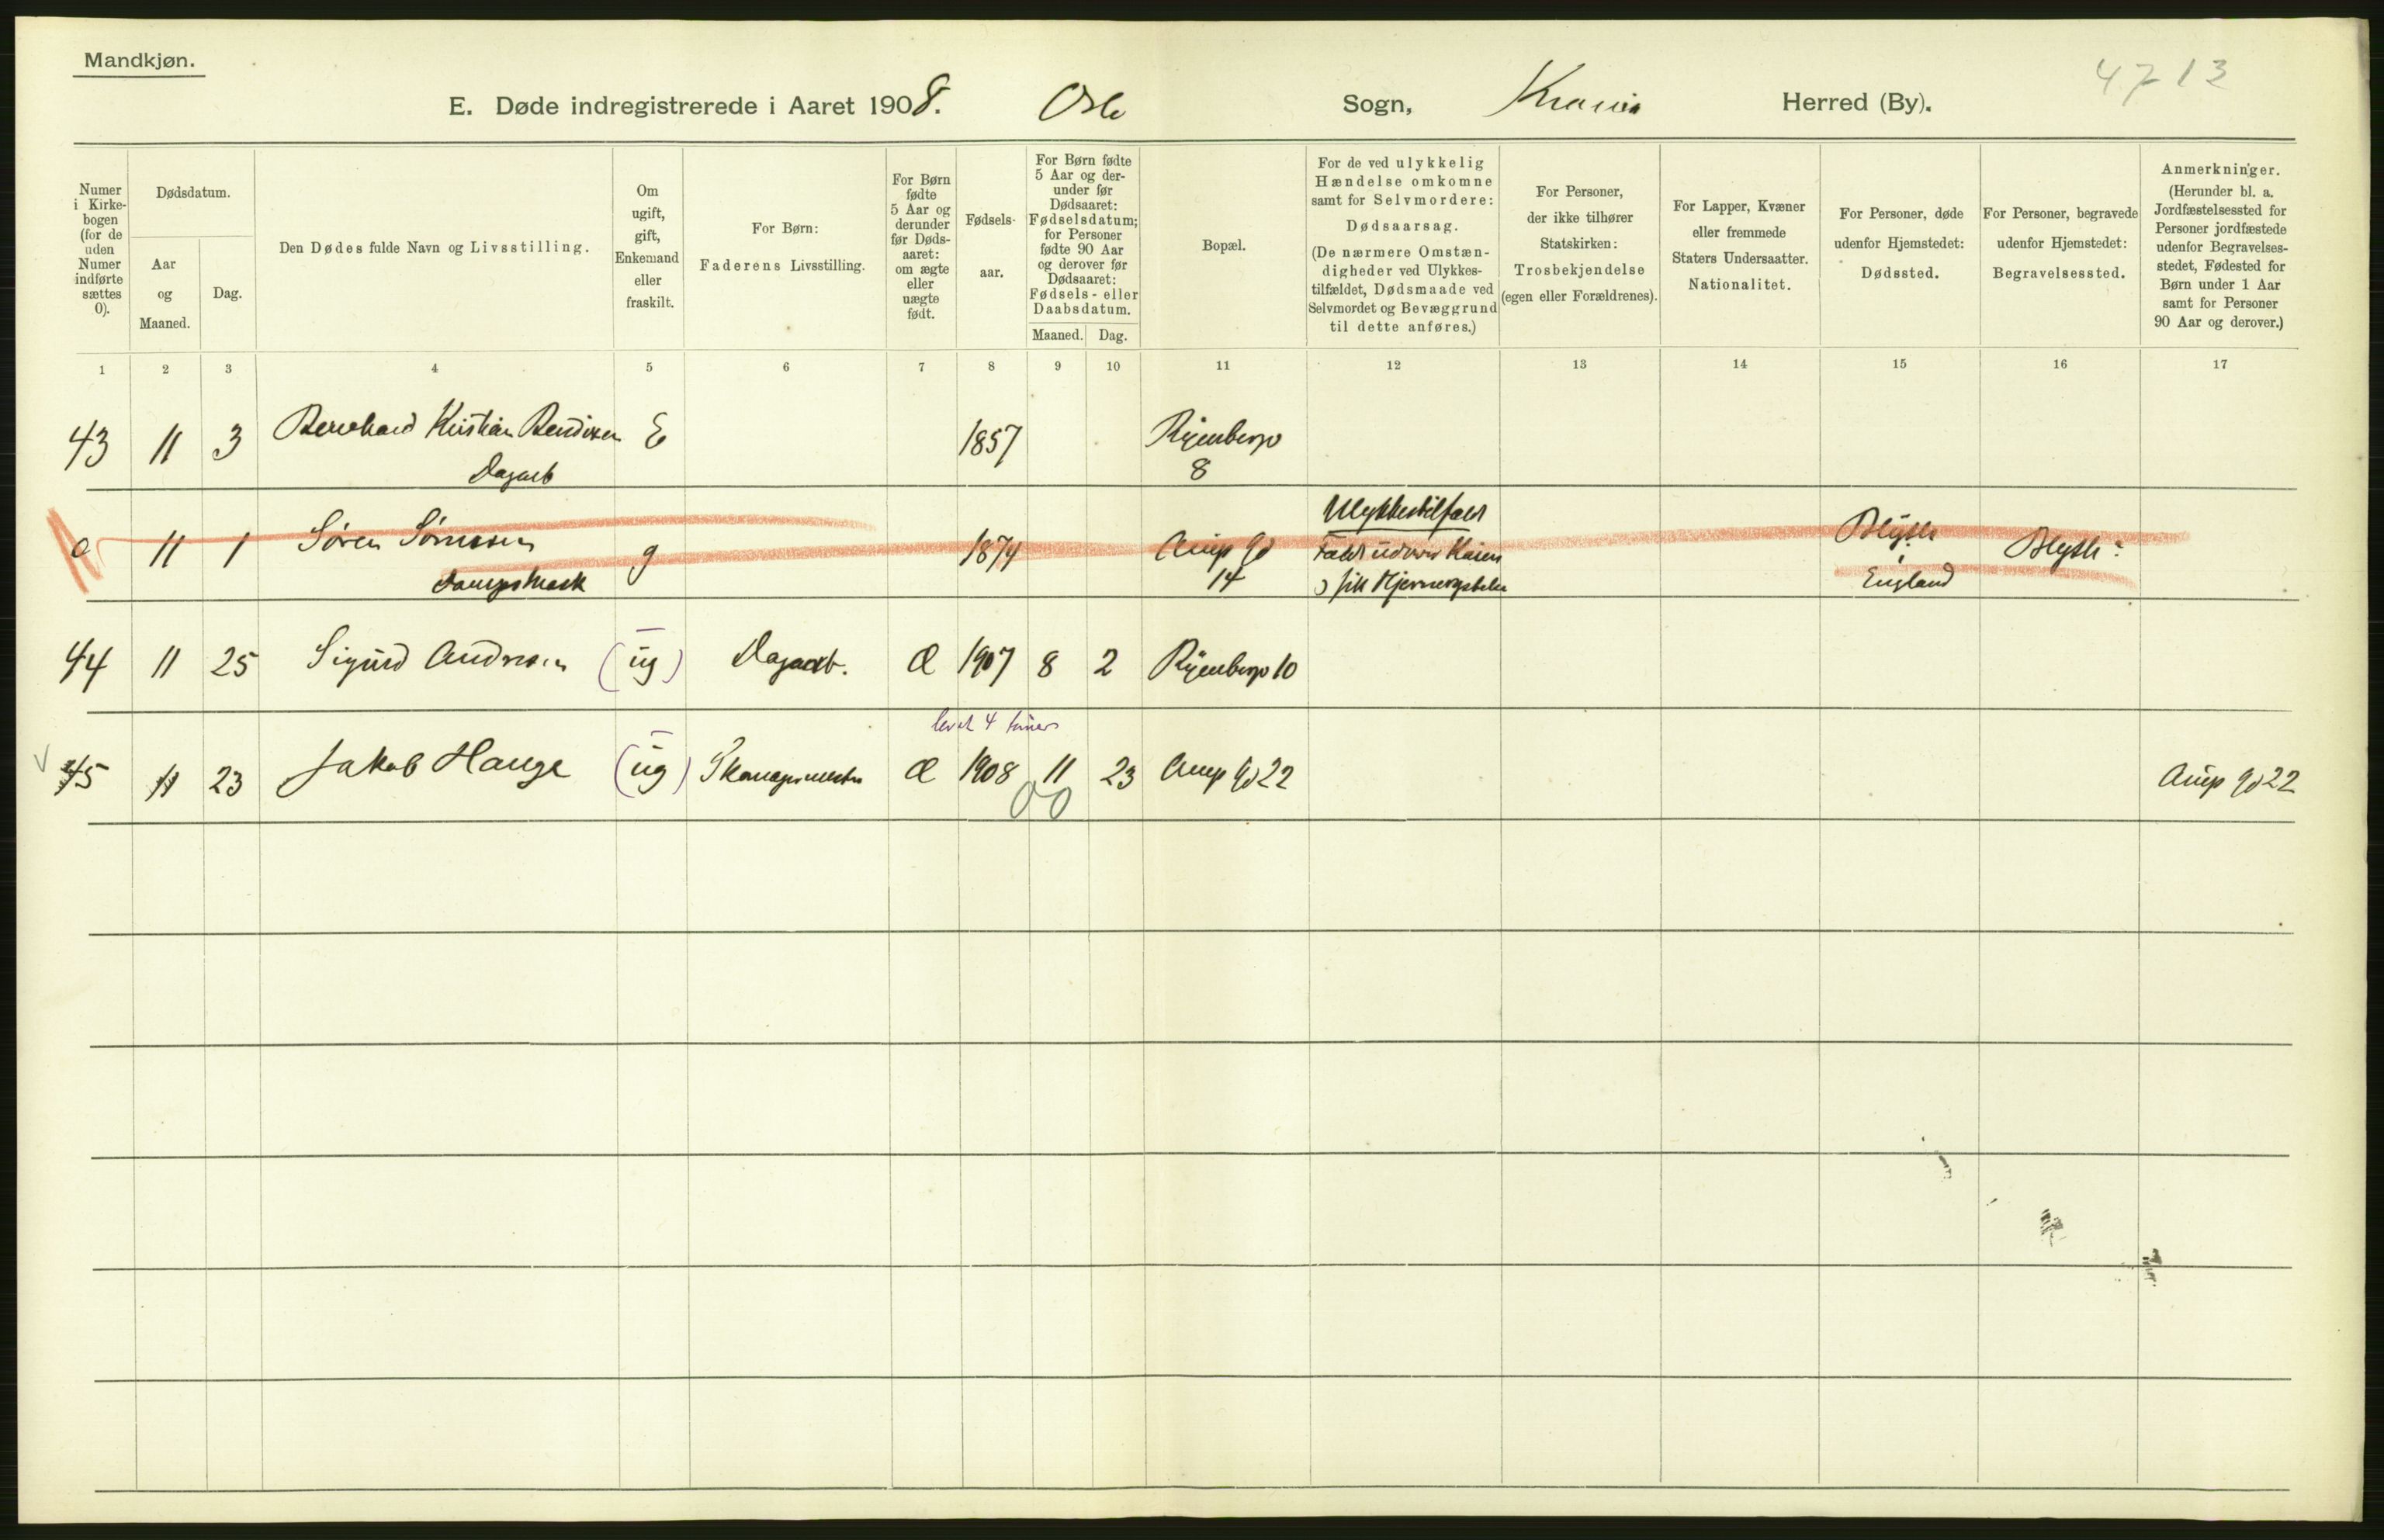 Mandkjøn.
4713
E. Døde indregistrerede i Aaret 1908. Oslo Sogn, Krania Herred (By).
Numer i Kirke-bogen (for de uden Numer indførte sættes 0).
Dødsdatum.
Aar og Maaned.
Dag.
Den Dødes fulde Navn og Livsstilling.
Om ugift, gift, Enkemand eller fraskilt.
For Børn: Faderens Livsstilling.
For Børn fødte 5 Aar og derunder før Døds-aaret: om ægte eller uægte født.
Fødsels-aar.
For Børn fødte 5 Aar og der-under før Dødsaaret: Fødselsdatum; for Personer fødte 90 Aar og derover før Dødsaaret: Fødsels- eller Daabsdatum.
Maaned. Dag.
Bopæl.
For de ved ulykkelig Hændelse omkomne samt for Selvmordere: Dødsaarsag. (De nærmere Omstæn-digheder ved Ulykkes-tilfældet, Dødsmaade ved Selvmordet og Bevæggrund til dette anføres.)
For Personer, der ikke tilhører Statskirken: Trosbekjendelse (egen eller Forældrenes).
For Lapper, Kvæner eller fremmede Staters Undersaatter. Nationalitet.
For Personer, døde udenfor Hjemstedet: Dødssted.
For Personer, begravede udenfor Hjemstedet: Begravelsessted.
Anmerkninger. (Herunder bl. a. Jordfæstelsessted for Personer jordfæstede udenfor Begravelses-stedet, Fødested for Børn under 1 Aar samt for Personer 90 Aar og derover.)
1 2 3 4 5 6 7 8 9 10 11 12 13 14 15 16 17
43 11 3 Bernhard Kristian Bendixen E 1857 Ryenbergv
Dagarb 8
Ulykkestilfæld
0 11 1 Søren Sørensen g 1874 Arups Gd Faldt udover Kaien Blyth Blyth
14 i England
44 11 25 Sigurd Andresen (ug) Dagarb. Æ 1907 8 2 Ryenbergv 10
levet 4 timer
45 11 23 Jakob Hauge (ug) Æ 1908 11 23 Arup Gd 22 Arup Gd 22
00